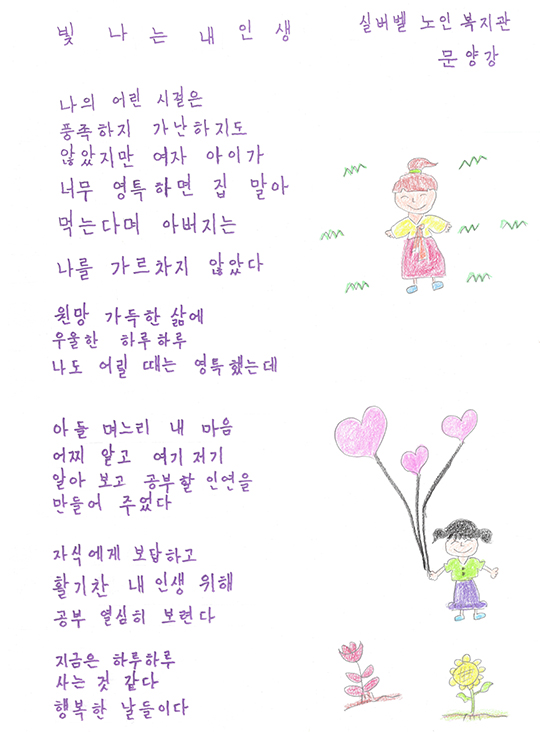 빛 나는 내 인생
실버벨 노인복지관
문양강
나의 어린 시절은
풍족하지 가난하지도
않았지만 여자 아이가
너무 영특하면 집 말아
먹는다며 아버지는
나를 가르차지 않았다
원망 가득한 삶에
우울한 하루하루
나도 어릴 때는 영특했는데
아들 며느리 내 마음
어찌 알고 여기저기
알아 보고 공부할 인연을
만들어 주었다
자식에게 보답하고
활기찬 내 인생 위해
공부 열심히 보련다
지금은 하루하루
사는 것 같다
행복한 날들이다